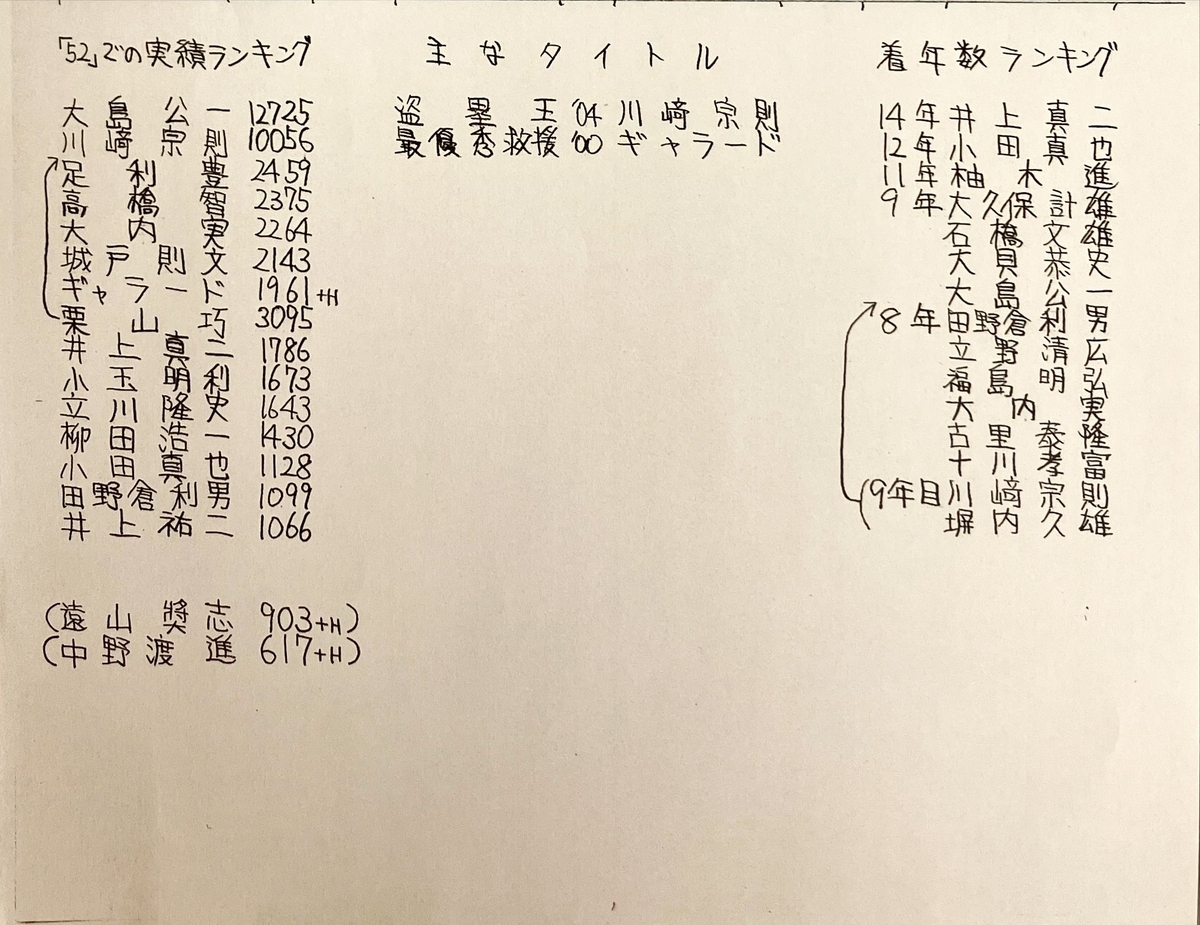 「52」での実績ランキング
大島公一 12725
川﨑宗則 10056
足利豊 2459
高橋智 2375
大内実 2264
城戸則文 2143
ギャラード 1961+H
栗山巧 3095
井上真二 1786
小玉明利 1673
立川隆史 1643
柳田浩一 1430
小田真也 1128
田野倉利男 1099
井上祐二 1066
(遠山奬志 903+H)
(中野渡進 617+H)
主なタイトル
盗塁王 '04 川﨑宗則
最優秀救援 '00 ギャラード
着年数ランキング
14年 井上真二
12年 小田真也
11年 柚木進
9年 大久保計雄
石橋文雄
大貝恭史
大島公一
8年 田野倉利男
立野清広
福島明弘
大内実
古里泰隆
十川孝富
(9年目 川﨑宗則
塀内久雄